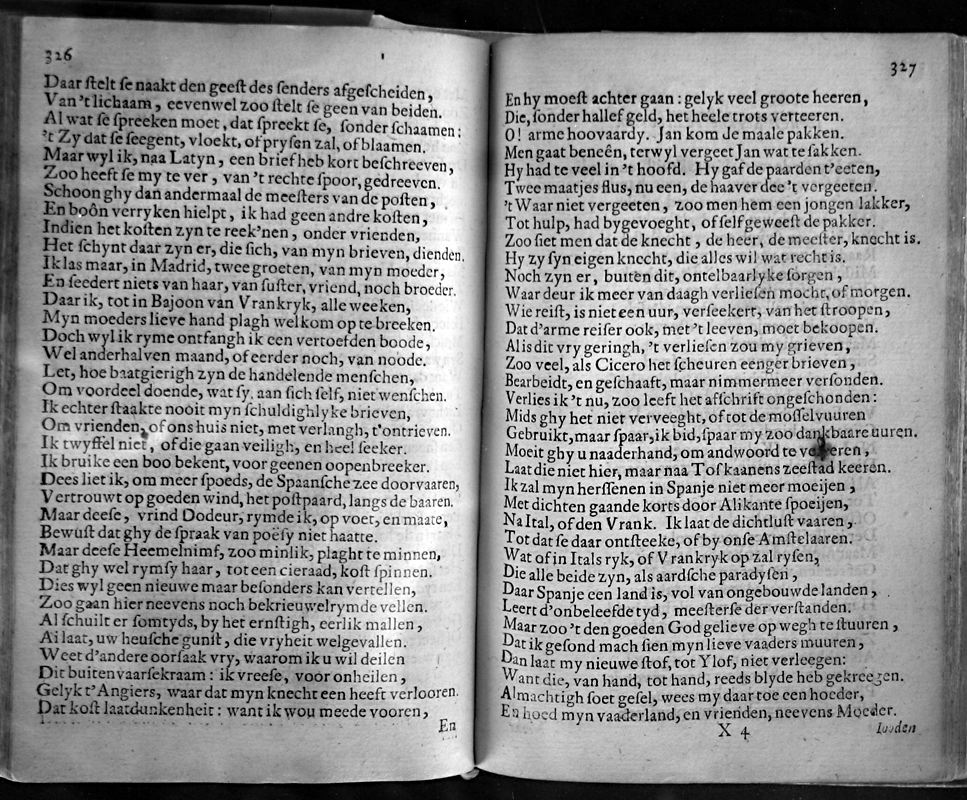 326
Daar ſtelt ſe naakt den geeſt des ſenders afgeſcheiden,
Van 't lichaam, eevenwel zoo ſtelt ſe geen van beiden.
Al wat ſe ſpreeken moet, dat ſpreekt ſe, ſonder ſchaamen:
't Zy dat ſe ſeegent, vloekt, of pryſen zal, of blaamen.
Maar wyl ik, naa Latyn, een brief heb kort beſchreeven,
Zoo heeft ſe my te ver, van 't rechte ſpoor, gedreeven.
Schoon ghy dan andermaal de meeſters van de poſten,
En boôn verryken hielpt, ik had geen andre koſten,
Indien het koſten zyn te reek'nen, onder vrienden,
Het ſchynt daar zyn er, die ſich, van myn brieven, dienden.
Ik las maar, in Madrid, twee groeten, van myn moeder,
En ſeedert niets van haar, van ſuſter, vriend, noch broeder.
Daar ik, tot in Bajoon van Vrankryk, alle weeken,
Myn moeders lieve hand plagh welkom op te breeken.
Doch wyl ik ryme ontfangh ik een vertoefden boode,
Wel anderhalven maand, of eerder noch, van noode.
Let, hoe baatgierigh zyn de handelende menſchen,
Om voordeel doende, wat ſy, aan ſich ſelf, niet wenſchen.
Ik echter ſtaakte nooit myn ſchuldighlyke brieven,
Om vrienden, of ons huis niet, met verlangh, t'ontrieven.
Ik twyffel niet, of die gaan veiligh, en heel ſeeker.
Ik bruike een boo bekent, voor geenen oopenbreeker.
Dees liet ik, om meer ſpoeds, de Spaanſche zee doorvaaren,
Vertrouwt op goeden wind, het poſtpaard, langs de baaren.
Maar deeſe, vrind Dodeur, rymde ik, op voet, en maate,
Bewuſt dat ghy de ſpraak van poëſy niet haatte.
Maar deeſe Heemelnimf, zoo minlik, plaght te minnen,
Dat ghy wel rymſy haar, tot een cieraad, koſt ſpinnen.
Dies wyl geen nieuwe maar beſonders kan vertellen,
Zoo gaan hier neevens noch bekrieuwelrymde vellen.
Al ſchuilt er ſomtyds, by het ernſtigh, eerlik mallen,
Ai laat, uw heuſche gunſt, die vryheit welgevallen.
Weet d'andere oorſaak vry, waarom ik u wil deilen
Dit buitenvaarſekraam: ik vreeſe, voor onheilen,
Gelyk t'Angiers, waar dat myn knecht een heeft verlooren.
Dat koſt laatdunkenheit: want ik wou meede vooren,
En
327
En hy moeſt achter gaan: gelyk veel groote heeren,
Die, ſonder hallef geld, het heele trots verteeren.
O! arme hoovaardy. Jan kom de maale pakken.
Men gaat beneên, terwyl vergeet Jan wat te ſakken.
Hy had te veel in 't hoofd. Hy gaf de paarden t'eeten,
Twee maatjes flus, nu een, de haaver dee 't vergeeten.
't Waar niet vergeeten, zoo men hem een jongen lakker,
Tot hulp, had bygevoeght, of ſelf geweeſt de pakker.
Zoo ſiet men dat de knecht, de heer, de meeſter, knecht is.
Hy zy ſyn eigen knecht, die alles wil wat recht is.
Noch zyn er, buiten dit, ontelbaarlyke ſorgen,
Waar deur ik meer van daagh verlieſen mocht, of morgen.
Wie reiſt, is niet een uur, verſeekert, van het ſtroopen,
Dat d'arme reiſer ook, met 't leeven, moet bekoopen.
Al is dit vry geringh, 't verlieſen zou my grieven,
Zoo veel, als Cicero het ſcheuren eenger brieven,
Bearbeidt, en geſchaaft, maar nimmermeer verſonden.
Verlies ik 't nu, zoo leeft het afſchrift ongeſchonden:
Mids ghy het niet verveeght, of tot de moſſelvuuren
Gebruikt, maar ſpaar, ik bid, ſpaar my zoo dankbaare uuren.
Moeit ghy u naaderhand, om andwoord te veſeren,
Laat die niet hier, maar naa Toſkaanens zeeſtad keeren.
Ik zal myn herſſenen in Spanje niet meer moeijen,
Met dichten gaande korts door Alikante ſpoeijen,
Na Ital, of den Vrank. Ik laat de dichtluſt vaaren,
Tot dat ſe daar ontſteeke, of by onſe Amſtelaaren.
Wat of in Itals ryk, of Vrankryk op zal ryſen,
Die alle beide zyn, als aardſche paradyſen,
Daar Spanje een land is, vol van ongebouwde landen,
Leert d'onbeleefde tyd, meeſterſe der verſtanden.
Maar zoo 't den goeden God gelieve op wegh te ſtuuren,
Dat ik geſond mach ſien myn lieve vaaders muuren,
Dan laat my nieuwe ſtof, tot Ylof, niet verleegen:
Want die, van hand, tot hand, reeds blyde heb gekreegen.
Almachtigh ſoet geſel, wees my daar toe een hoeder,
En hoed myn vaaderland, en vrienden, neevens Moeder.
X 4
Iooden